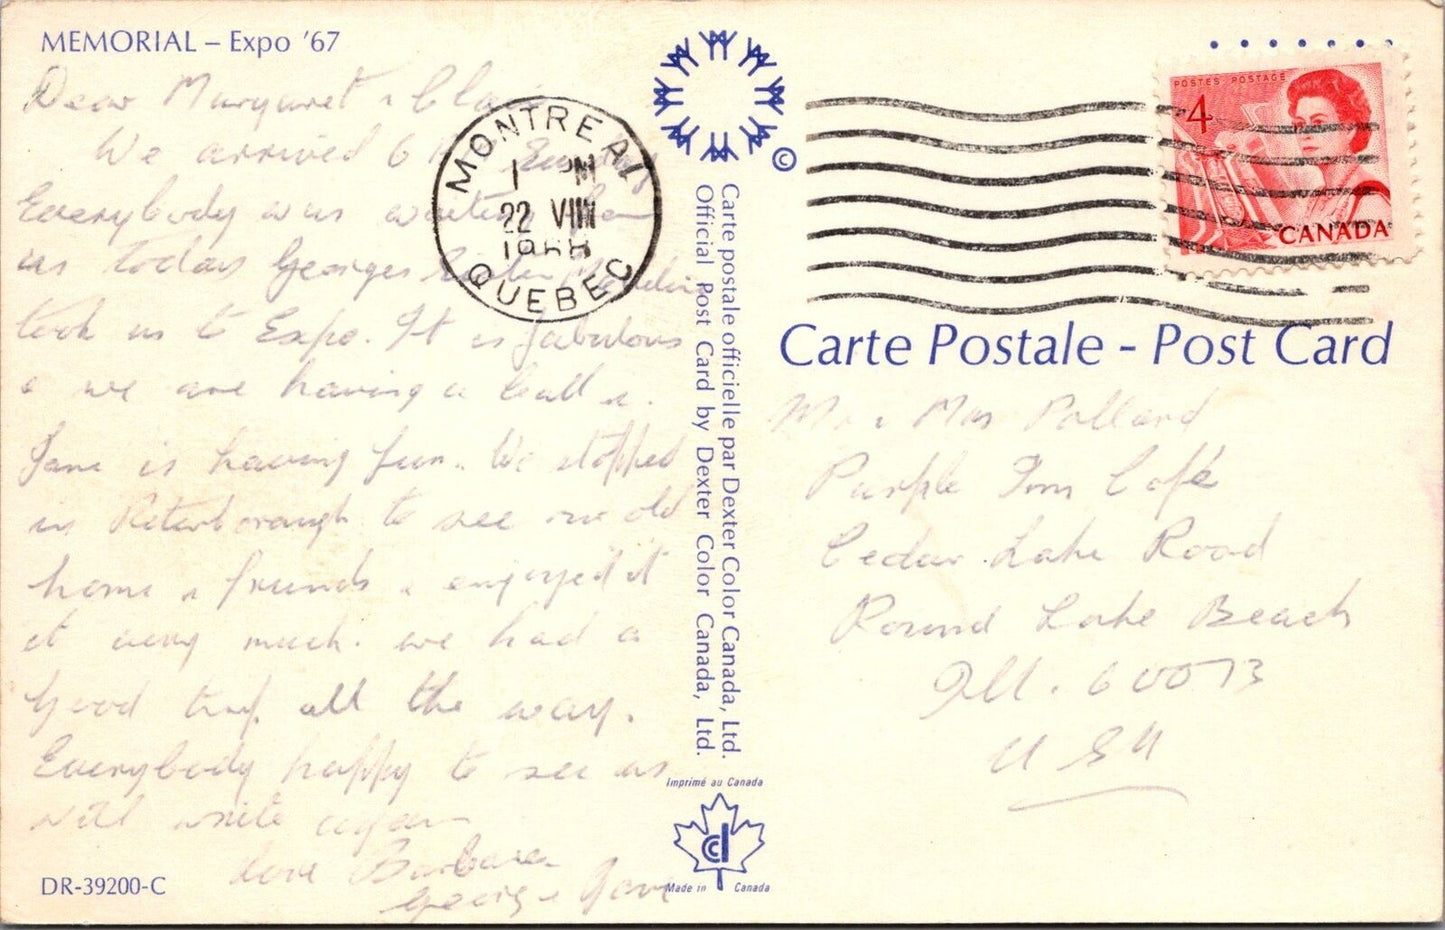 MEMORIAL – Expo '67
Dear Margaret &
We arrived 6 Sunday
Everybody was waiting
us today Georges
took us to Expo. It is fabulous
& we are having a ball
Jane is having fun. We stopped
in Peterborough to see our old
home & friends & enjoyed it
it very much. we had a
good trip all the way.
Everybody happy to see us
will write again
love Barbara
George & Jane
DR-39200-C
MONTREAL
1 PM
22 VIII
QUEBEC
©
Carte postale officielle par Dexter Color Canada, Ltd.
Official Post Card by Dexter Color Canada, Ltd.
Imprimé au Canada
dc
Made in Canada
POSTES POSTAGE
4
CANADA
Carte Postale - Post Card
Mr & Mrs Pollard
Purple Inn Café
Cedar Lake Road
Round Lake Beach
Ill. 60073
USA